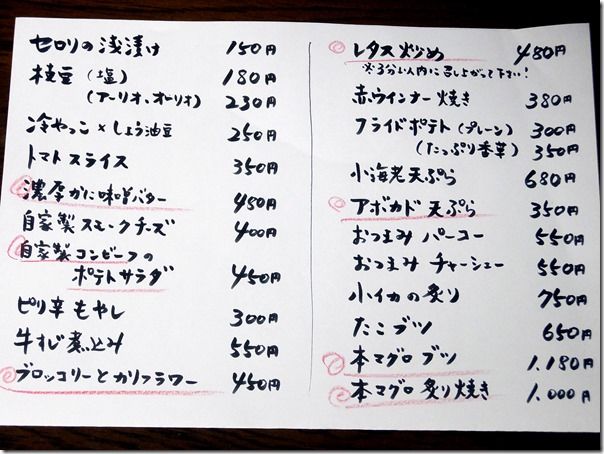 セロリの浅漬け 150円
枝豆(塩) 180円
(アーリオ、オーリオ) 230円
冷やっこ×しょう油豆 250円
トマトスライス 350円
濃厚かに味噌バター 480円
自家製スモークチーズ 400円
自家製コンビーフの
ポテトサラダ 450円
ピリ辛もやし 300円
牛すじ煮込み 550円
ブロッコリーとカリフラワー 450円
レタス炒め 480円
※3分以内に召し上がって下さい!
赤ウインナー焼き 380円
フライドポテト(プレーン) 300円
(たっぷり香草) 350円
小海老天ぷら 680円
アボカド天ぷら 350円
おつまみパーコー 550円
おつまみチャーシュー 550円
小イカの炙り 750円
たこブツ 650円
本マグロブツ 1.180円
本マグロ炙り焼き 1.000円